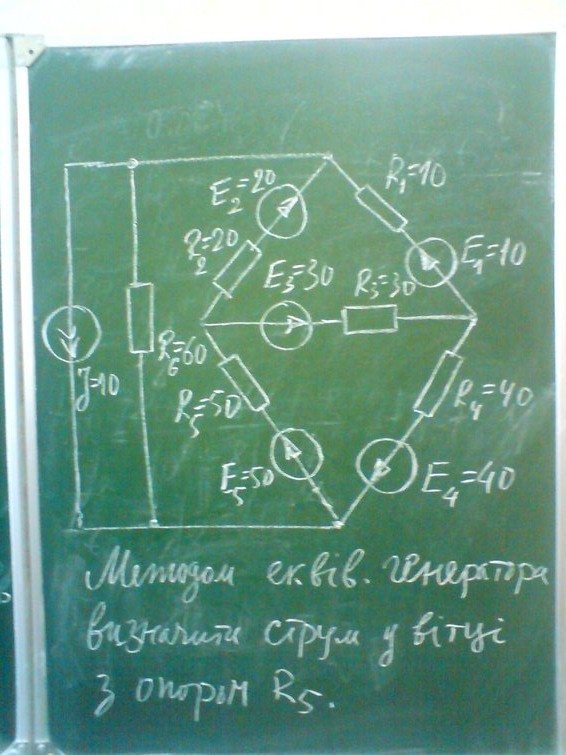 E₂=20
R₁=10
R₂=20
E₃=30
E₁=10
R₃=30
J=10
R₆=60
R₅=50
R₄=40
E₅=50
E₄=40
Методом еквів. генератора
визначити струм у вітці
з опором R₅.